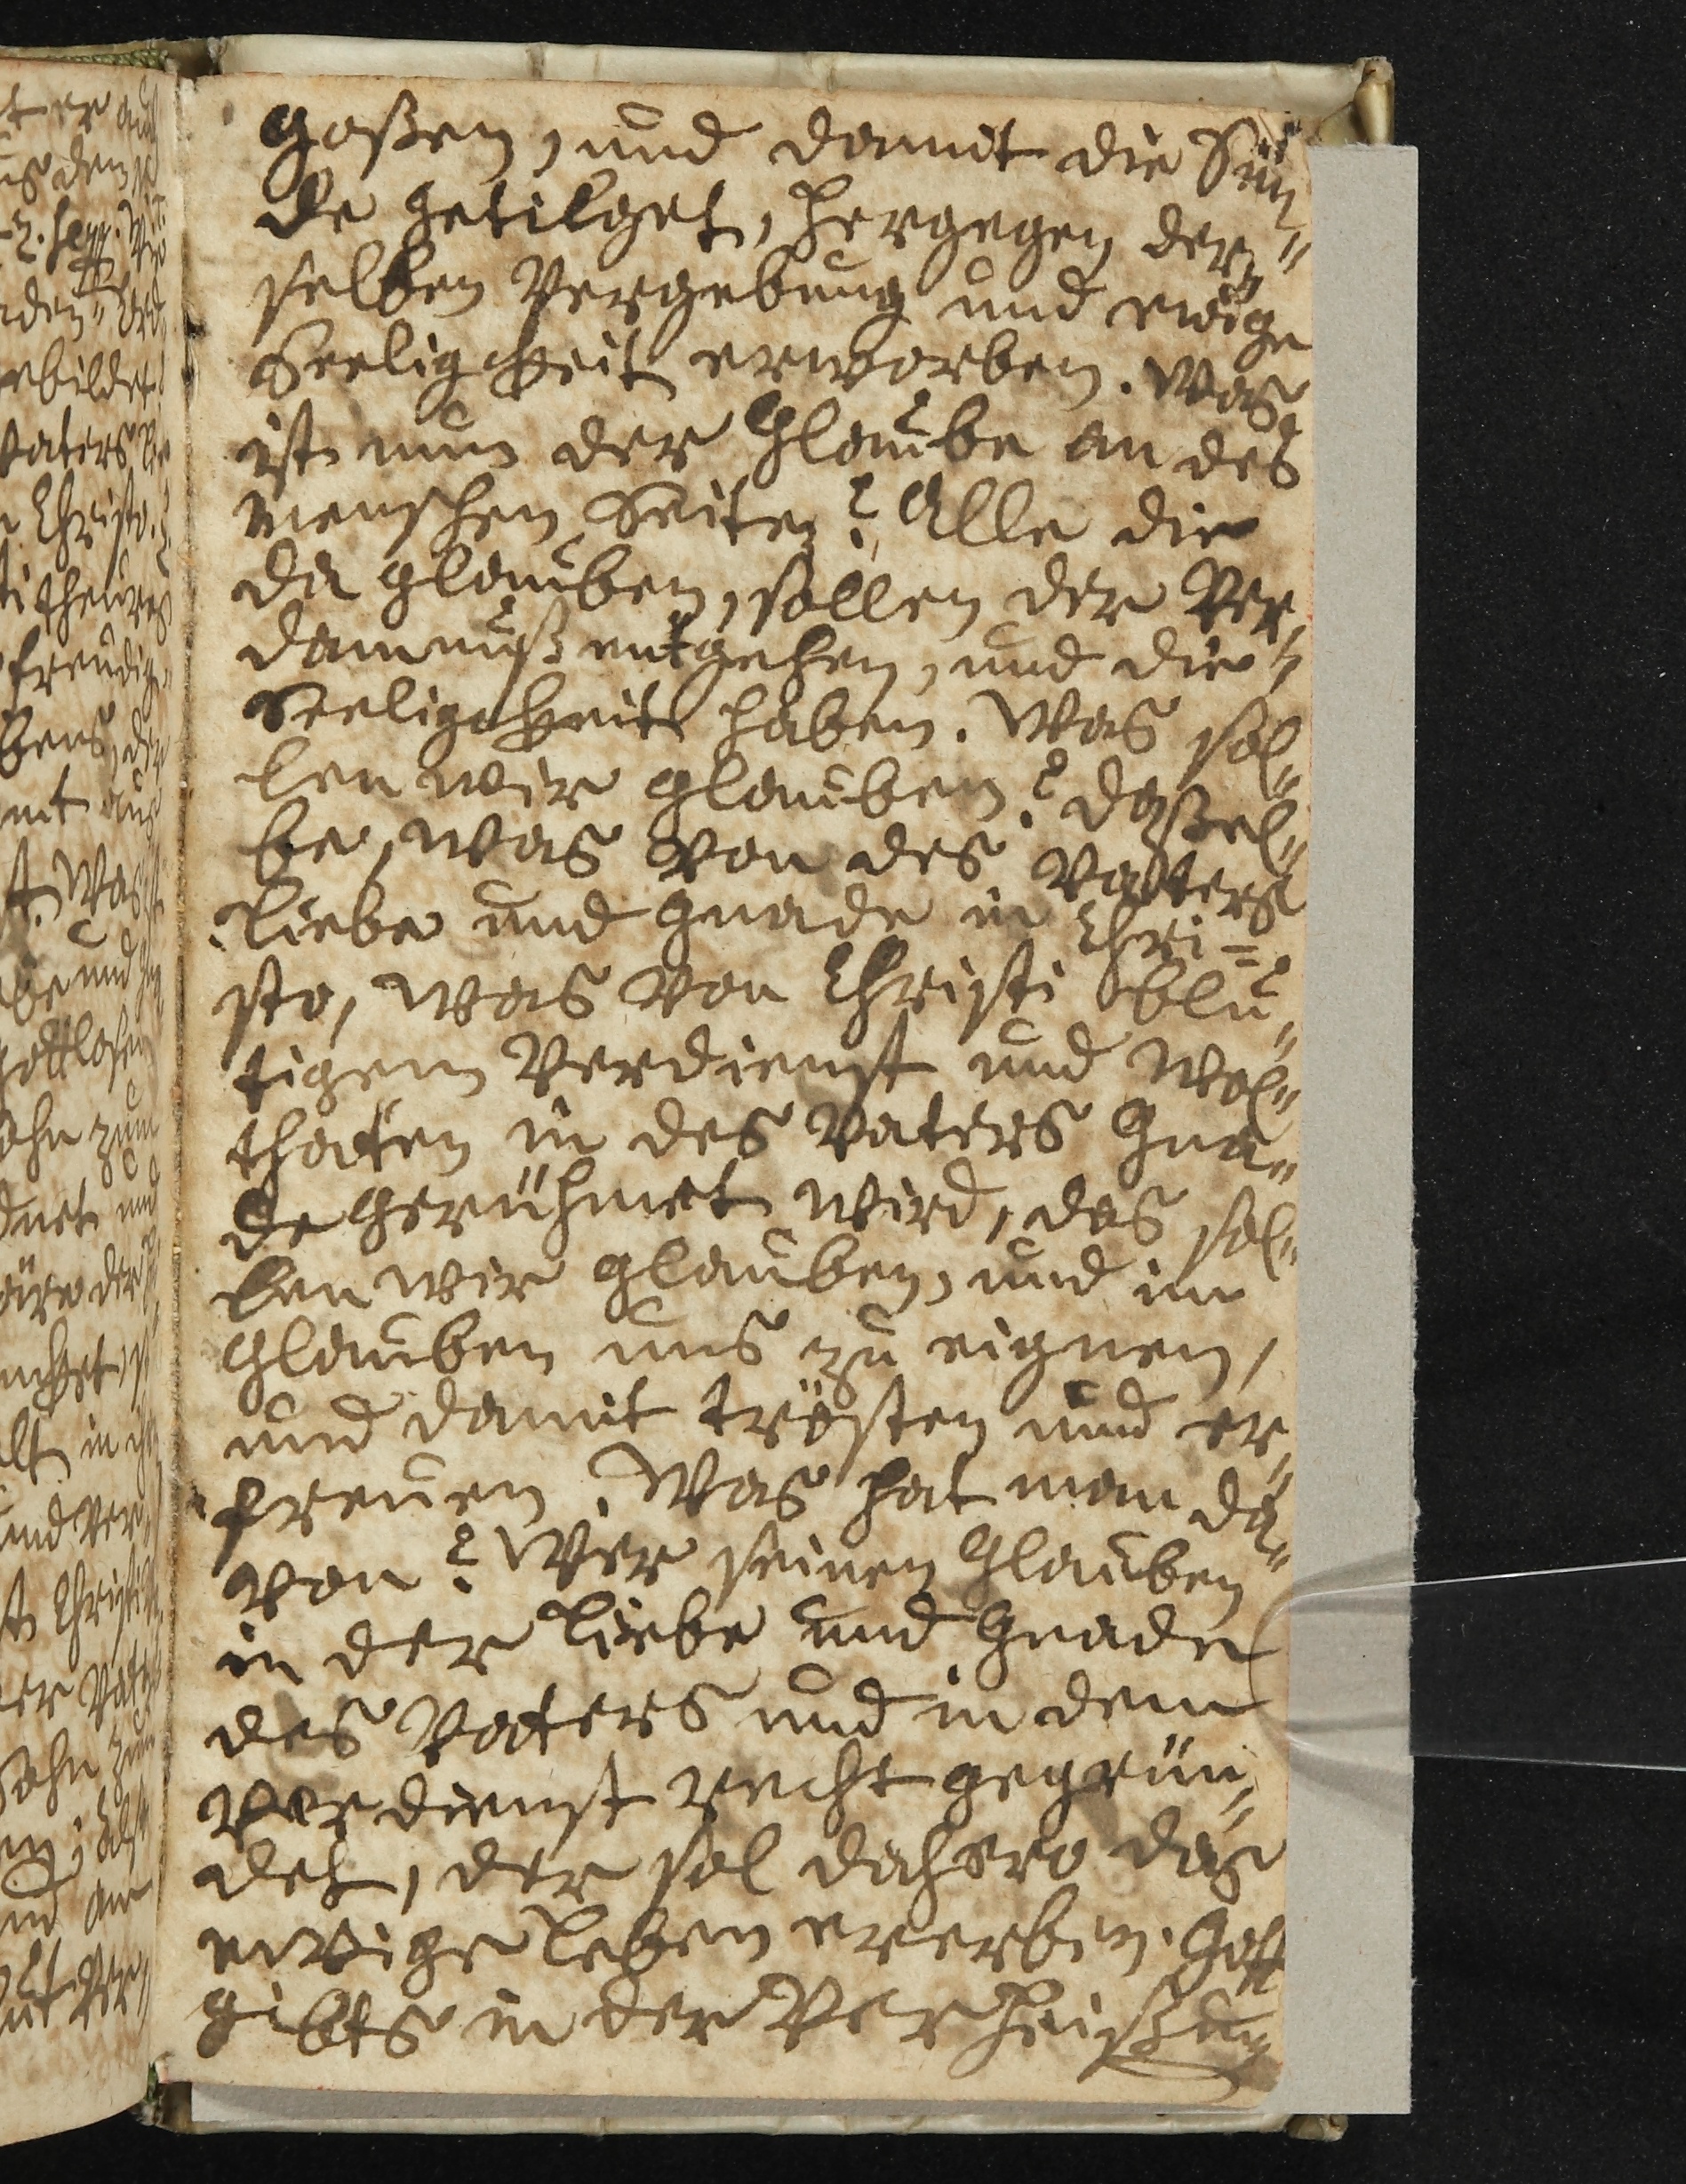 goßen, und damit die Sün„
de getilget, hergegen der„
selben Vergebung und ewige
Seeligkeit erworben. Was
ist nun der Glaube an des
menschen Seiten? Alle die
da glauben, sollen der Ver„
damnuß entgehen, und die
Seeligkeit haben. Was sol„
len wir glauben? daßel„
be, was von des Vatters
Liebe und Gnade in Chri=
sto, was von Christi blu„
tigem Verdienst und Wol„
thaten in des Vaters Gna„
de gerühmet wird, das sol„
len wir glauben, und im
Glauben uns zu eignen,
und damit trösten und er„
freuen. Was hat man da„
von? Wer seinen Glauben
in der Liebe und Gnade
des Vaters und in dem
Verdienst recht gegrün„
det, der sol dahero das
ewige Leben ererben. Gott
gibts in der Verheißung